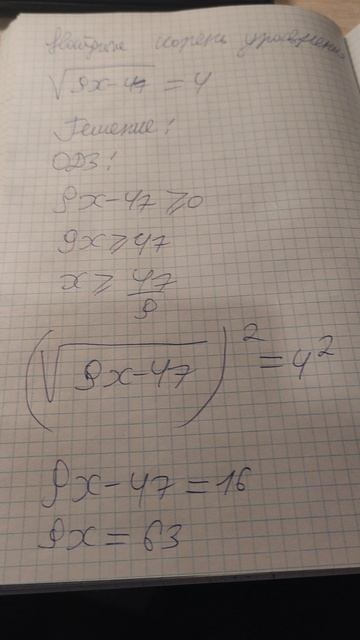 Найдите корень уравнения
√9x-47 = 4
Решение!
ОДЗ!
9x-47 ≥ 0
9x ≥ 47
x ≥ 47/9
(√9x-47)² = 4²
9x-47 = 16
9x = 63